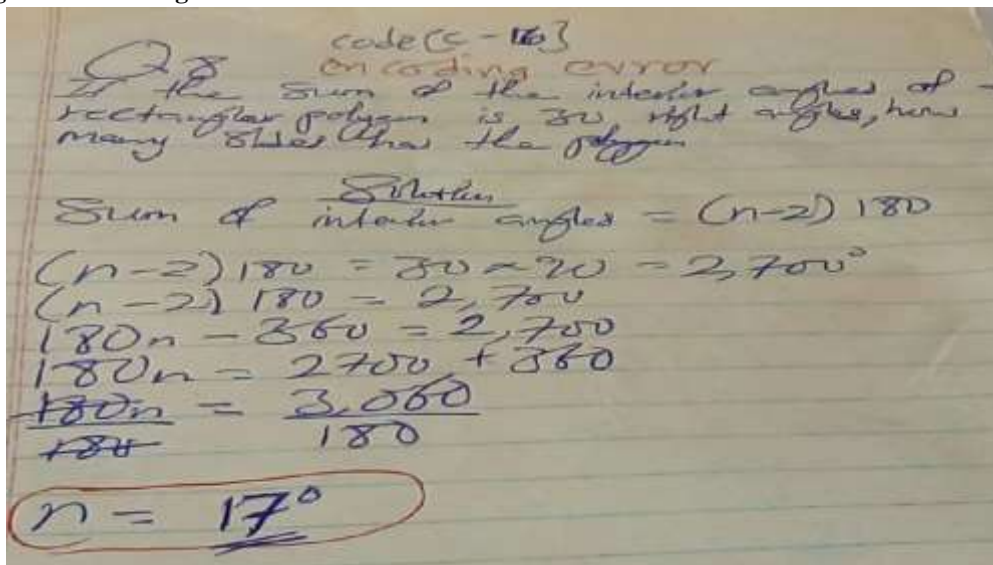 code (C - 16)
Q.8 encoding error
If the sum of the interior angles of
rectangular polygon is 30 right angles, how
many sides has the polygon
Solution
Sum of interior angles = (n-2) 180
(n-2) 180 = 30 × 90 = 2,700°
(n-2) 180 = 2,700
180n - 360 = 2,700
180n = 2700 + 360
180n = 3,060
180 180
n = 17°